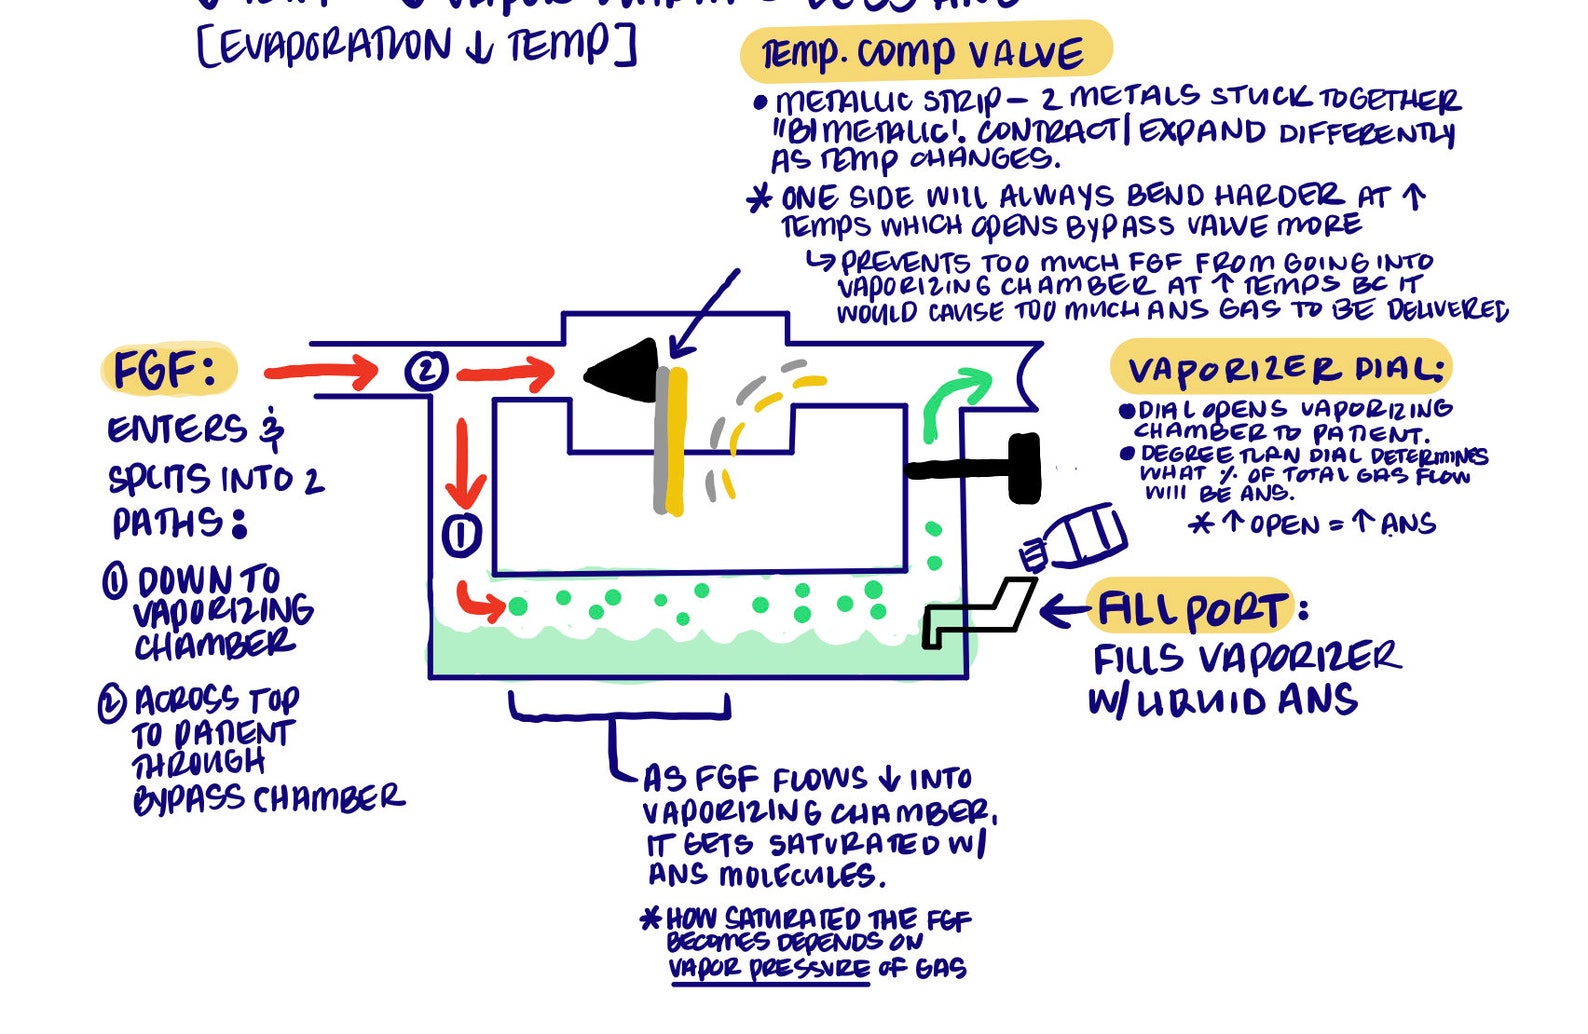 [EVAPORATION ↓ TEMP]
TEMP. COMP VALVE
• METALLIC STRIP - 2 METALS STUCK TOGETHER
"BIMETALIC". CONTRACT/EXPAND DIFFERENTLY
AS TEMP CHANGES.
* ONE SIDE WILL ALWAYS BEND HARDER AT ↑
TEMPS WHICH OPENS BYPASS VALVE MORE
↳ PREVENTS TOO MUCH FGF FROM GOING INTO
VAPORIZING CHAMBER AT ↑ TEMPS BC IT
WOULD CAUSE TOO MUCH ANS GAS TO BE DELIVERED
FGF:
ENTERS &
SPLITS INTO 2
PATHS:
① DOWN TO
VAPORIZING
CHAMBER
② ACROSS TOP
TO PATIENT
THROUGH
BYPASS CHAMBER
②
①
VAPORIZER DIAL:
• DIAL OPENS VAPORIZING
CHAMBER TO PATIENT.
• DEGREE TURN DIAL DETERMINES
WHAT % OF TOTAL GAS FLOW
WILL BE ANS.
* ↑ OPEN = ↑ ANS
← FILL PORT:
FILLS VAPORIZER
W/ LIQUID ANS
AS FGF FLOWS ↓ INTO
VAPORIZING CHAMBER,
IT GETS SATURATED W/
ANS MOLECULES.
* HOW SATURATED THE FGF
BECOMES DEPENDS ON
VAPOR PRESSURE OF GAS